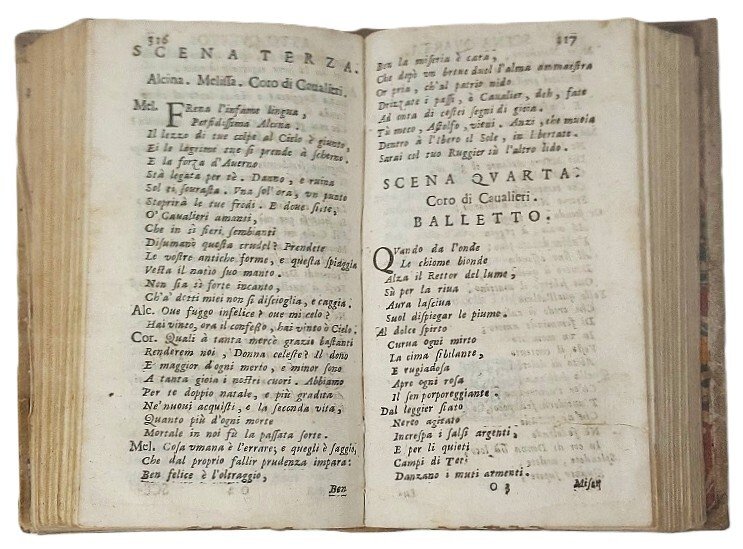 316
SCENA TERZA.
Alcina. Melissa. Coro di Caualieri.
Mel. FRena l'infame lingua,
Perfidissima Alcina.
Il lezzo di tue colpe al Cielo è giunto,
Ei le legrime tue si prende à scherno,
E la forza d'Auerno
Stà legata per tè. Danno, e ruina
Sol ti sourasta. Vna sol'ora, vn punto
Scoprirà le tue frodi. E doue siete,
O' Caualieri amanti,
Che in sì fieri sembianti
Disumanò questa crudel? Prendete
Le vostre antiche forme, e questa spiaggia
Vesta il natio suo manto.
Non sia sì forte incanto,
Ch'a' detti miei non si discioglia, e caggia.
Alc. Oue fuggo infelice? oue mi celo?
Hai vinto, ora il confesso, hai vinto ò Cielo.
Cor. Quali à tanta mercè grazie bastanti
Renderem noi, Donna celeste? Il dono
E maggior d'ogni merto, e minor sono
A tanta gioia i nostri cuori. Abbiamo
Per te doppio natale, e più gradita
Ne' nuoui acquisti, e la seconda vita,
Quanto più d'ogni morte
Mortale in noi fù la passata sorte.
Mel. Cosa vmana è l'errare; e quegli è saggio,
Che dal proprio fallir prudenza impara:
Ben felice è l'oltraggio,
Ben
317
Ben la miseria è cara,
Che dopò vn breue duel l'alma ammaestra
Or pria, ch'al patrio nido
Drizzate i passi, è Caualier, deh, fate
Ad onta di costei segni di gioia.
Tù meco, Astolfo, vieni. Anzi, che muoia
Dentro à l'Ibero il Sole, in libertate
Sarai col tuo Ruggier sù l'altro lido.
SCENA QVARTA.
Coro di Caualieri.
BALLETTO.
QVando da l'onde
Le chiome bionde
Alza il Rettor del lume,
Sù per la riua
Aura lasciua
Suol dispiegar le piume.
Al dolce spirto
Curua ogni mirto
La cima sibilante,
E rugiadosa
Apre ogni rosa
Il sen porporeggiante.
Dal leggier fiato
Nereo agitato
Increspa i salsi argenti,
E per li quieti
Campi di Teti
Danzano i muti armenti.
O 3
Miser